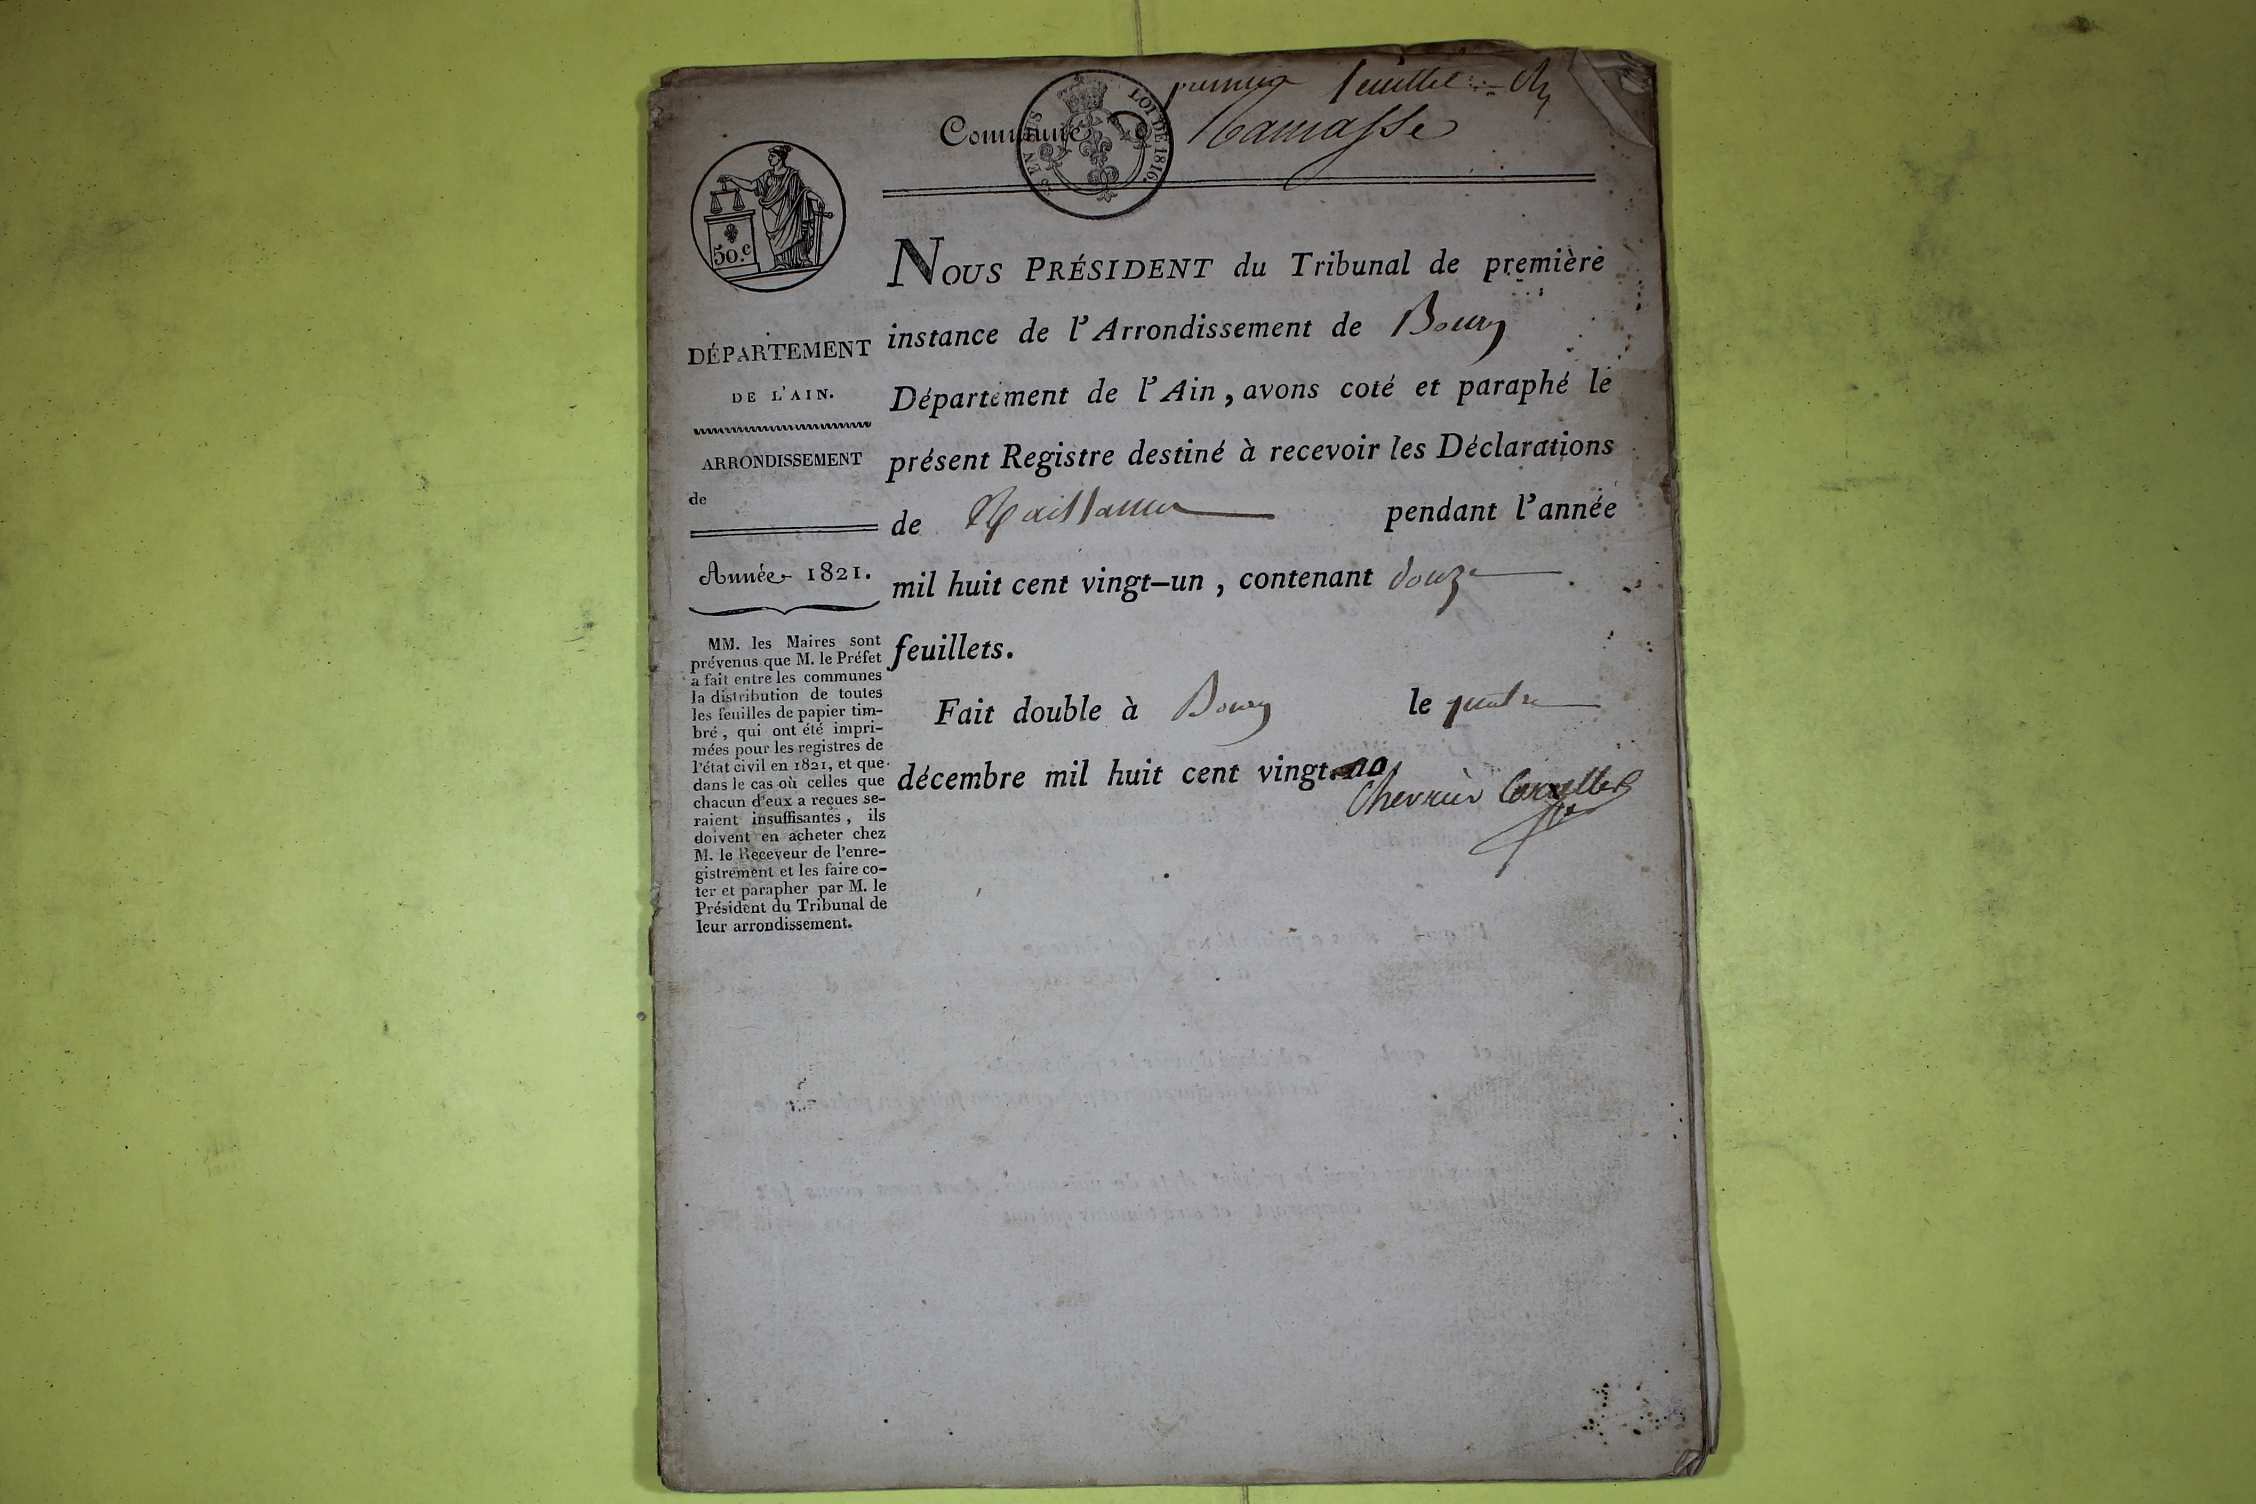 premier feuillet
Commune De Ramasse
S EN SUS
LOI DE 1816.
50.c
DÉPARTEMENT
DE L'AIN.
ARRONDISSEMENT
de
Année 1821.
MM. les Maires sont
prévenus que M. le Préfet
a fait entre les communes
la distribution de toutes
les feuilles de papier tim-
bré, qui ont été impri-
mées pour les registres de
l'état civil en 1821, et que
dans le cas où celles que
chacun d'eux a reçues se-
raient insuffisantes, ils
doivent en acheter chez
M. le Receveur de l'enre-
gistrement et les faire co-
ter et parapher par M. le
Président du Tribunal de
leur arrondissement.
NOUS PRÉSIDENT du Tribunal de première
instance de l'Arrondissement de Bourg
Département de l'Ain, avons coté et paraphé le
présent Registre destiné à recevoir les Déclarations
de Naissance pendant l'année
mil huit cent vingt-un, contenant douze
feuillets.
Fait double à Bourg le quatre
décembre mil huit cent vingt.
Chevrier Corcelles